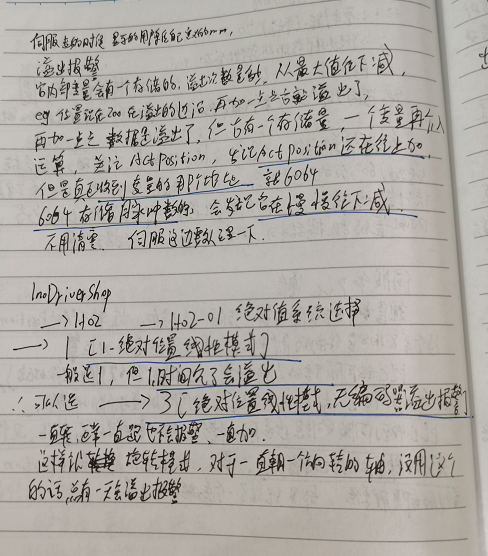 伺服 的时候 显示的用
溢出报警
它内部变量会有一个存储的,溢出次数是的,从最大值往下减,
eg 位置现在200在溢出的边沿,再加一点点它就溢出了,
再加一点点 数据是溢出了,但它有一个存储量,一个变量再介入
运算,关注ActPosition,发现Act position还在往上加,
但是真正收到变量的那个地址 就6064
6064存储的脉冲数的 会发现它在慢慢往下减.
不用清零. 伺服这边默认处理一下.
InoDriverShop
→H02 →H02-01 绝对值系统选择
→ 1 [1-绝对位置线性模式]
一般选1,但1,时间久了会溢出
∴可以选 → 3[绝对位置线性模式,无编码器溢出报警]
一直转,这样一直跑也不会报警,一直加.
这样说 旋转模式,对于一直朝一个方向转的轴,没用这个
的话,总有一天会溢出报警